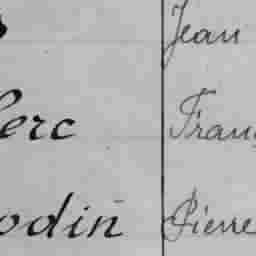 Jean
lerc Franç
odin Pierre